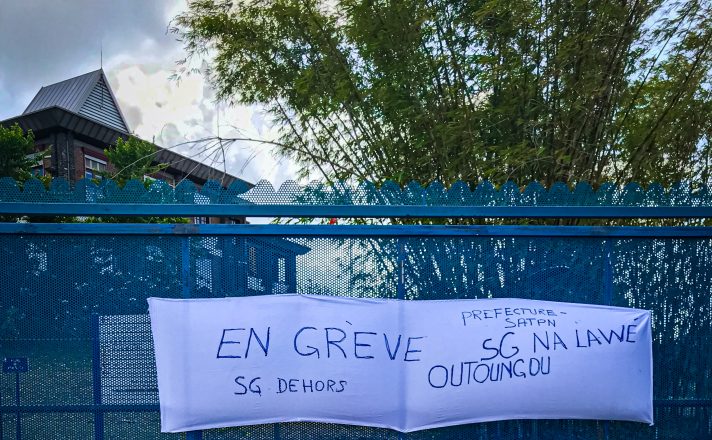 EN GRÈVE
SG DEHORS
PREFECTURE-
SATPN
SG NA LAWE
OUTOUNGOU